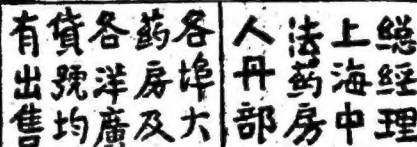 總經理
上海中
法药房
人丹部
各埠大
药房及
各洋廣
貨號均
有出售